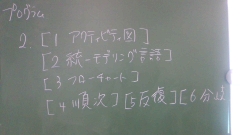 プログラム
2. [1 アクティビティ図]
[2 統一モデリング言語]
[3 フローチャート]
[4 順次] [5 反復] [6 分岐]